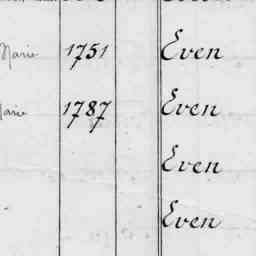 Marie 1751 Even
Marie 1787 Even
Even
Even